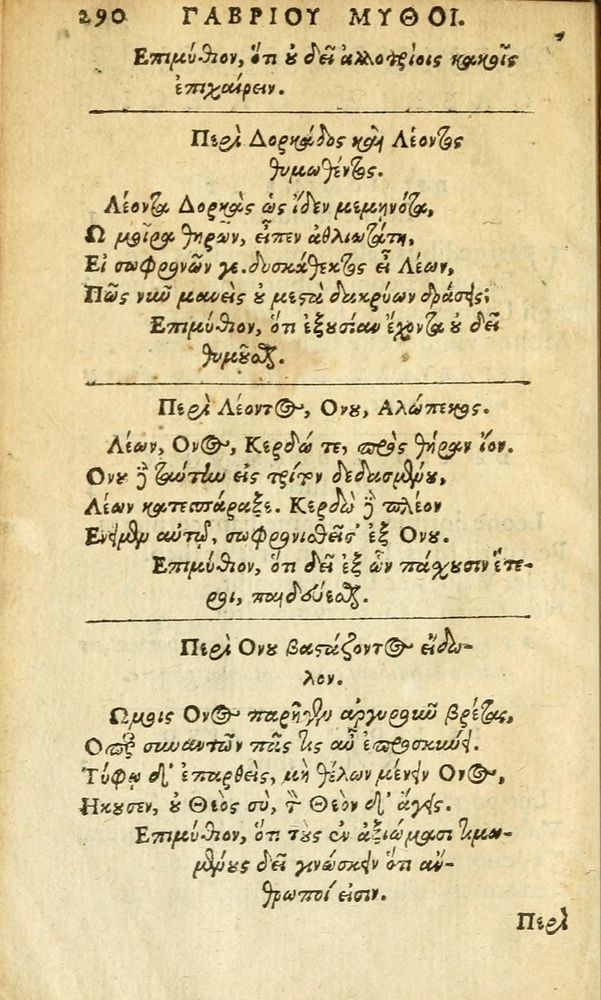 290 ΓΑΒΡΙΟΥ ΜΥΘΟΙ.
Επιμύθιον, ὅτι οὐ δεῖ ἀλλοτρίοις κακοῖς
ἐπιχαίρειν.
Περὶ Δορκάδος καὶ Λέοντος
θυμωθέντος.
Λέοντα Δορκὰς ὡς ἴδεν μεμηνότα,
Ω μοῖρα θηρῶν, εἶπεν ἀθλιωτάτη,
Εἰ σωφρονῶν γε δυσκάθεκτος εἶ Λέων,
Πῶς νῦν μανεὶς οὐ μετὰ δακρύων δράσεις;
Επιμύθιον, ὅτι ἐξουσίαν ἔχοντα οὐ δεῖ
θυμοῦσθαι.
Περὶ Λέοντος, Ονου, Αλώπεκος.
Λέων, Ονος, Κερδώ τε, πρὸς θήραν ἴον.
Ονου δὲ ταύτην εἰς τρίτην δεδασμένου,
Λέων κατεσπάραξε. Κερδὼ δὲ πλέον
Ενειμεν αὐτῷ, σωφρονισθεῖσ' ἐξ Ονου.
Επιμύθιον, ὅτι δεῖ ἐξ ὧν πάσχουσιν ἕτε-
ροι, παιδεύεσθαι.
Περὶ Ονου βαστάζοντος εἴδω-
λον.
Ωμοις Ονος παρῆγεν ἀργυροῦν βρέτας,
Ο περ συναντῶν πᾶς τις αὖ ἐπροσκύνει.
Τύφῳ δ' ἐπαρθεὶς, μὴ θέλων μένειν Ονος,
Ηκουσεν, οὐ Θεὸς σὺ, τὸν Θεὸν δ' ἄγεις.
Επιμύθιον, ὅτι τοὺς ἐν ἀξιώμασι τιμω-
μένους δεῖ γινώσκειν ὅτι ἄν-
θρωποί εἰσιν.
Περὶ